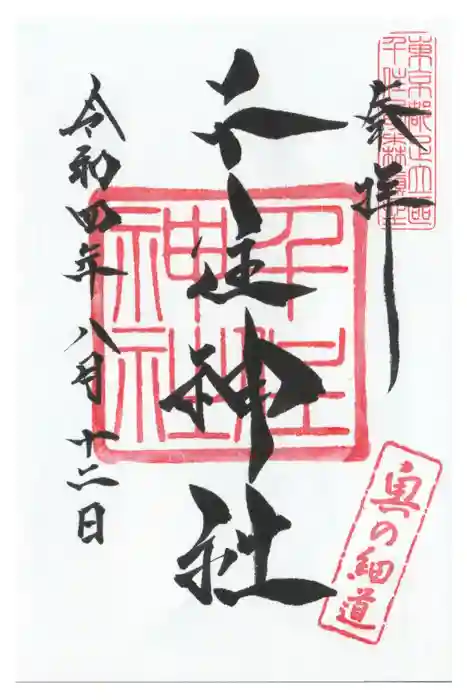 東京都足立区
千住
奉拝
千住神社
千住
神社
令和四年八月十二日
奥の細道